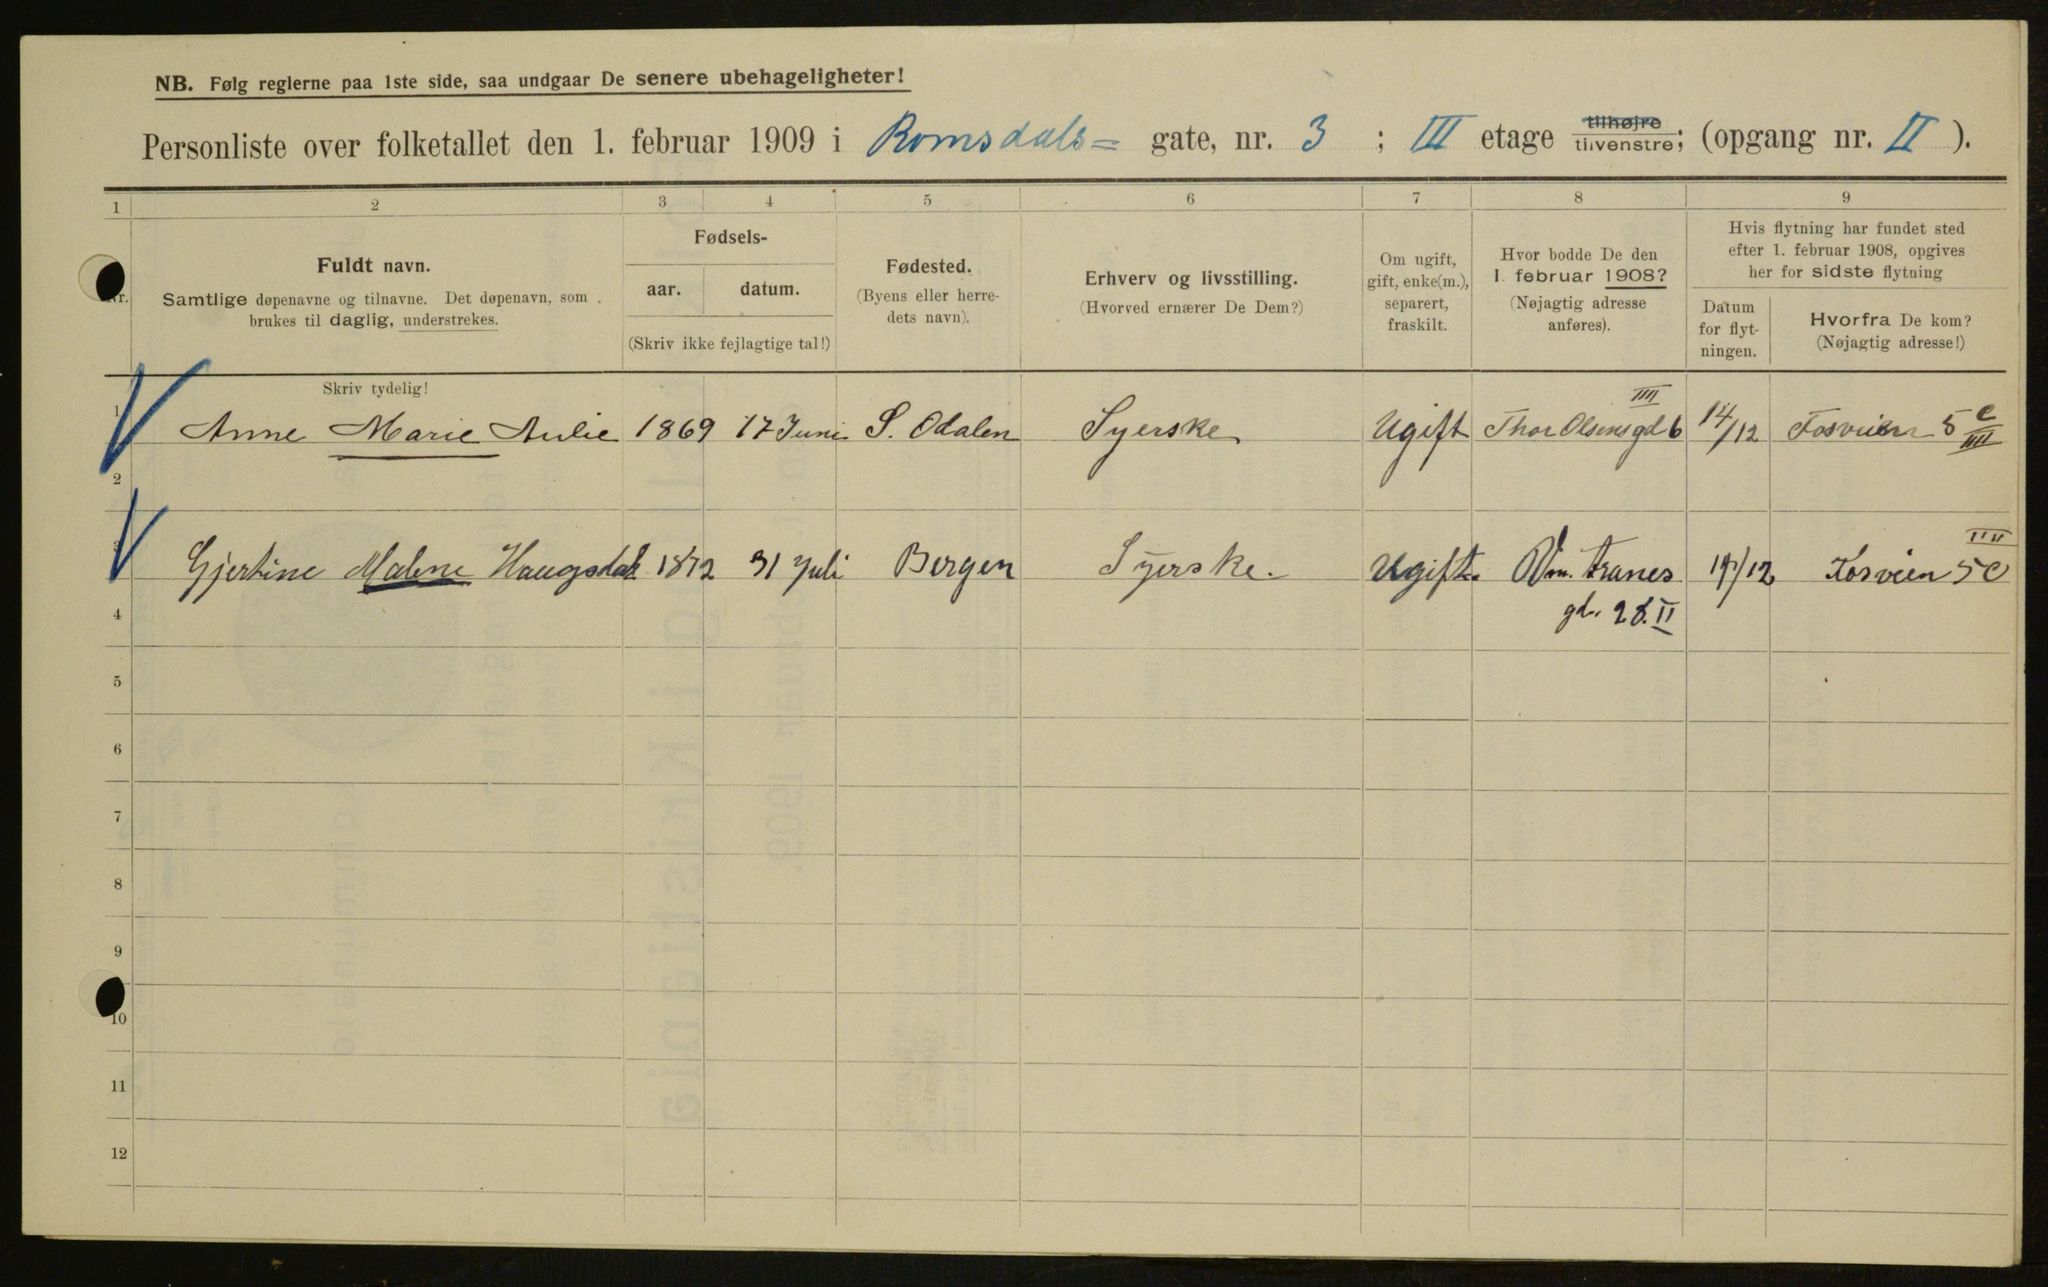 NB. Følg reglerne paa 1ste side, saa undgaar De senere ubehageligheter!
Personliste over folketallet den 1. februar 1909 i Romsdals= gate, nr. 3 ; III etage tilhøjre tilvenstre; (opgang nr. II ).
1 2 3 4 5 6 7 8 9
Nr.
Fuldt navn.
Samtlige døpenavne og tilnavne. Det døpenavn, som
brukes til daglig, understrekes.
Fødsels-
aar. datum.
(Skriv ikke fejlagtige tal!)
Fødested.
(Byens eller herre-
dets navn).
Erhverv og livsstilling.
(Hvorved ernærer De Dem?)
Om ugift,
gift, enke(m.),
separert,
fraskilt.
Hvor bodde De den
1. februar 1908?
(Nøjagtig adresse
anføres).
Hvis flytning har fundet sted
efter 1. februar 1908, opgives
her for sidste flytning
Datum
for flyt-
ningen.
Hvorfra De kom?
(Nøjagtig adresse!)
Skriv tydelig!
1 Anne Marie Aulie 1869 17 Juni S. Odalen Syerske Ugift Thor Olsens gd 6 IIII 14/12 Fosveien 5 c IIII
2
3 Gjertine Malene Haugsdal 1872 31 Juli Bergen Syerske. Ugift. Vm. Tranes 14/12 Fosveien 5c IIII
gd. 28. II
4
5
6
7
8
9
10
11
12